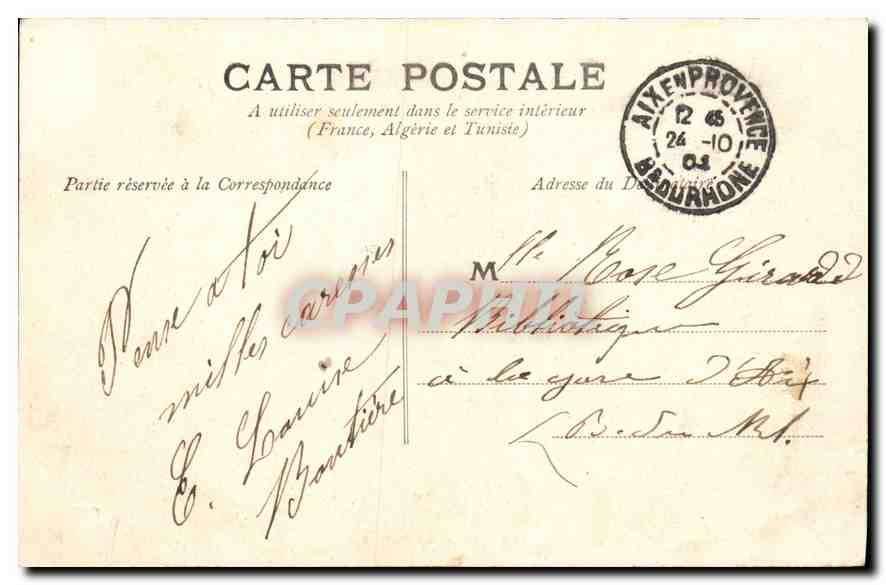 CARTE POSTALE
A utiliser seulement dans le service intérieur
(France, Algérie et Tunisie)
AIX EN PROVENCE
12
24 -10
04
Bes DU RHONE
Partie réservée à la Correspondance
Pense a toi
milles caresses
E. Louise
Boutière
Adresse du Destinataire
Mlle Rose Girard
à la gare d'Aix
B. du Rh.
CPAPHIL